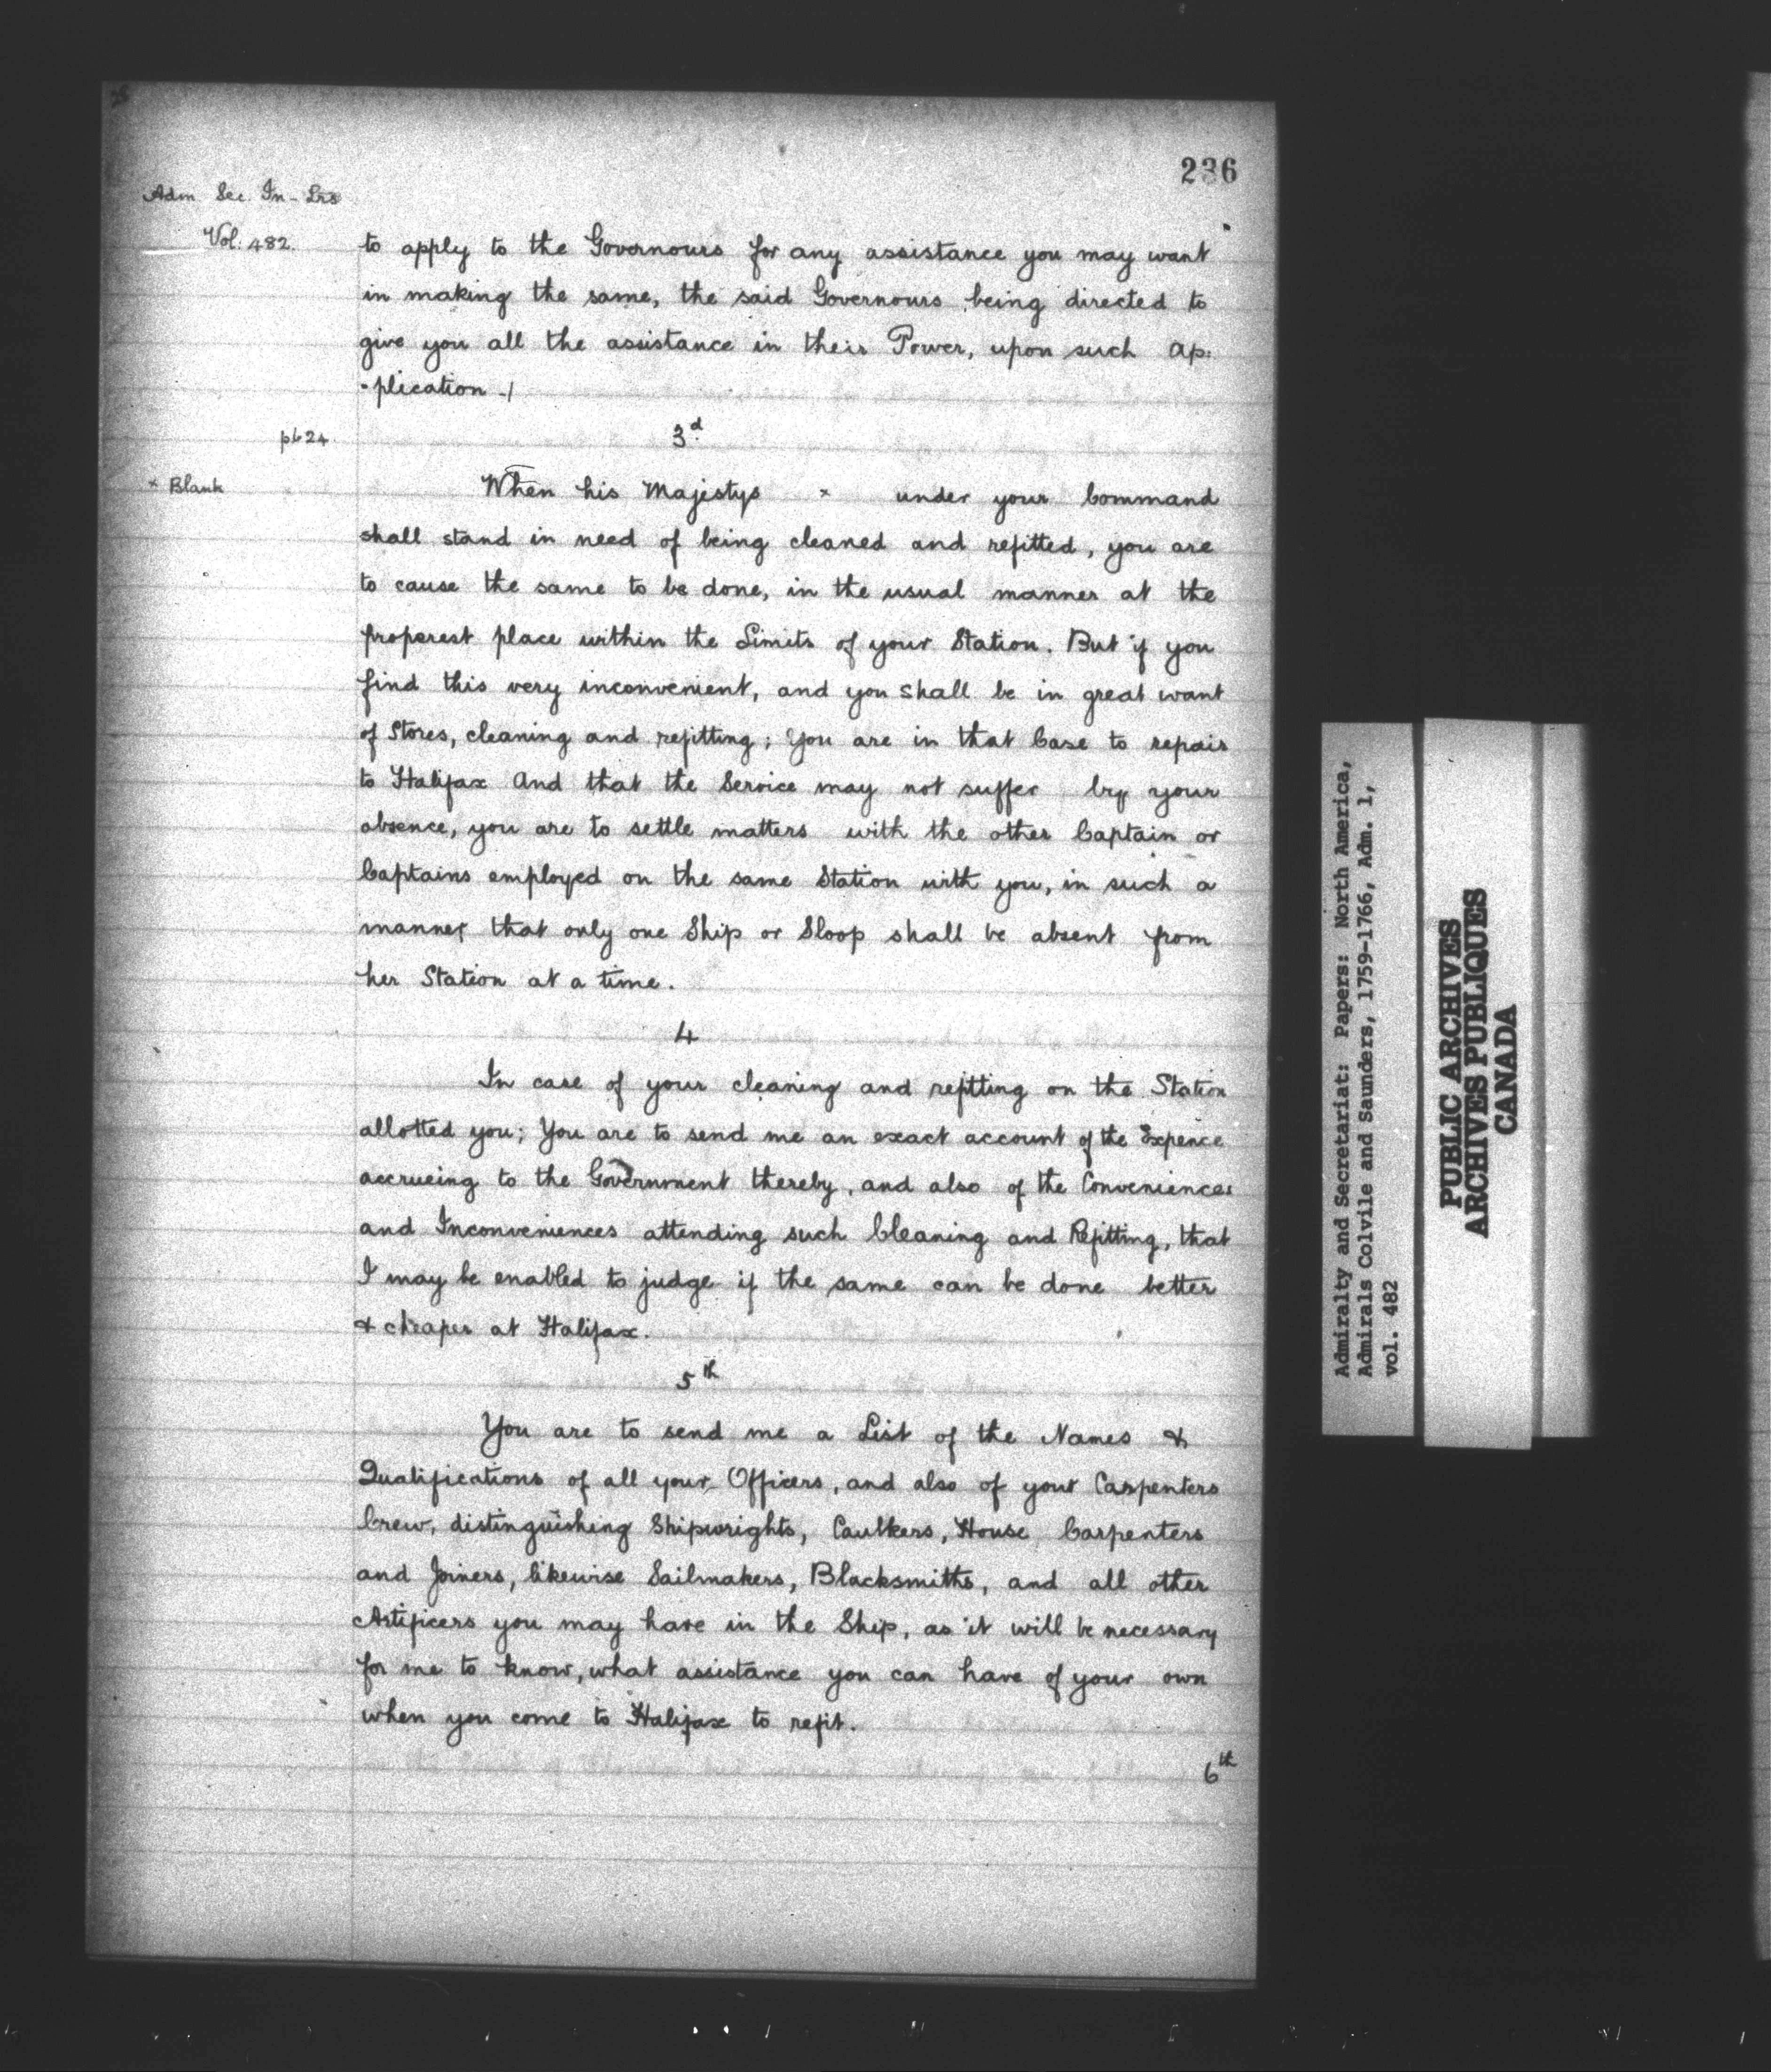 236
Adm Sec. In-Lrs
Vol. 482.
to apply to the Governours for any assistance you may want
in making the same, the said Governours being directed to
give you all the assistance in their Power, upon such ap:
-plication -/
p624
3d
* Blank
When his Majestys × under your Command
shall stand in need of being cleaned and refitted, you are
to cause the same to be done, in the usual manner at the
properest place within the Limits of your Station. But if you
find this very inconvenient, and you shall be in great want
of Stores, cleaning and refitting; you are in that Case to repair
to Halifax And that the Service may not suffer by your
absence, you are to settle matters with the other Captain or
Captains employed on the same Station with you, in such a
manner that only one Ship or Sloop shall be absent from
her Station at a time.
4
In case of your cleaning and refitting on the Station
allotted you; You are to send me an exact account of the Expence
accrueing to the Government thereby, and also of the Conveniences
and Inconveniences attending such Cleaning and Refitting, that
I may be enabled to judge if the same can be done better
& cheaper at Halifax.
5th
You are to send me a List of the Names &
Qualifications of all your Officers, and also of your Carpenters
Crew, distinguishing Shipwrights, Caulkers, House Carpenters
and Joiners, likewise Sailmakers, Blacksmiths, and all other
Artificers you may have in the Ship, as it will be necessary
for me to know, what assistance you can have of your own
when you come to Halifax to refit.
6th
Admiralty and Secretariat: Papers: North America,
Admirals Colvile and Saunders, 1759-1766, Adm. 1,
vol. 482
PUBLIC ARCHIVES
ARCHIVES PUBLIQUES
CANADA